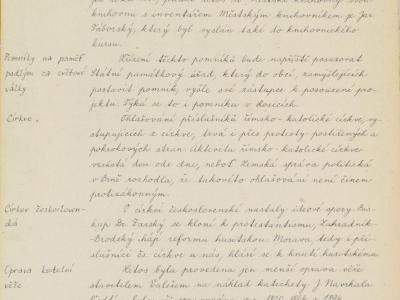 knihovnu s inventářem Městským knihovníkem p. Jar.
Táborský, který byl vyslán také do knihovnického
kursu.
Pomníky na paměť
padlým za světové
války
Řízení těchto pomníků bude napříště posuzovat
Státní památkový úřad, který do obcí, zamýšlejících
postavit pomník, vyšle své zástupce k posouzení pro-
jektu. Týká se to i pomníku v Rosicích.
Církve.
Ohlašování příslušníků římsko-katolické církve, vy-
stupujících z církve, trvá i přes protesty postižených a
pokrokových stran. Nechuť římsko-katolické církve
vzrůstá den ode dne, neboť Zemská správa politická
v Brně rozhodla, že takovéto ohlašování není činem
protizákonným.
Církev českosloven-
ská
V církvi československé nastaly ideové spory. Bis-
kup Dr. Farský se kloní k protestantismu, Zahradník-
Brodský hájí reformu husitskou. Morava, tedy i pří-
slušníci čs. církve u nás, hlásí se k hnutí husitskému.
Oprava kostelní
věže
Letos byla provedena jen menší oprava věže
stavitelem Valešem na náklad katechety J. Navrkala